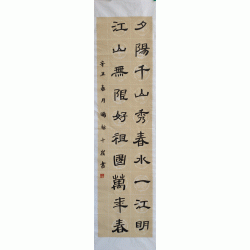 夕陽千山秀春水一江明
江山無限好祖國萬年春
辛丑
月
書